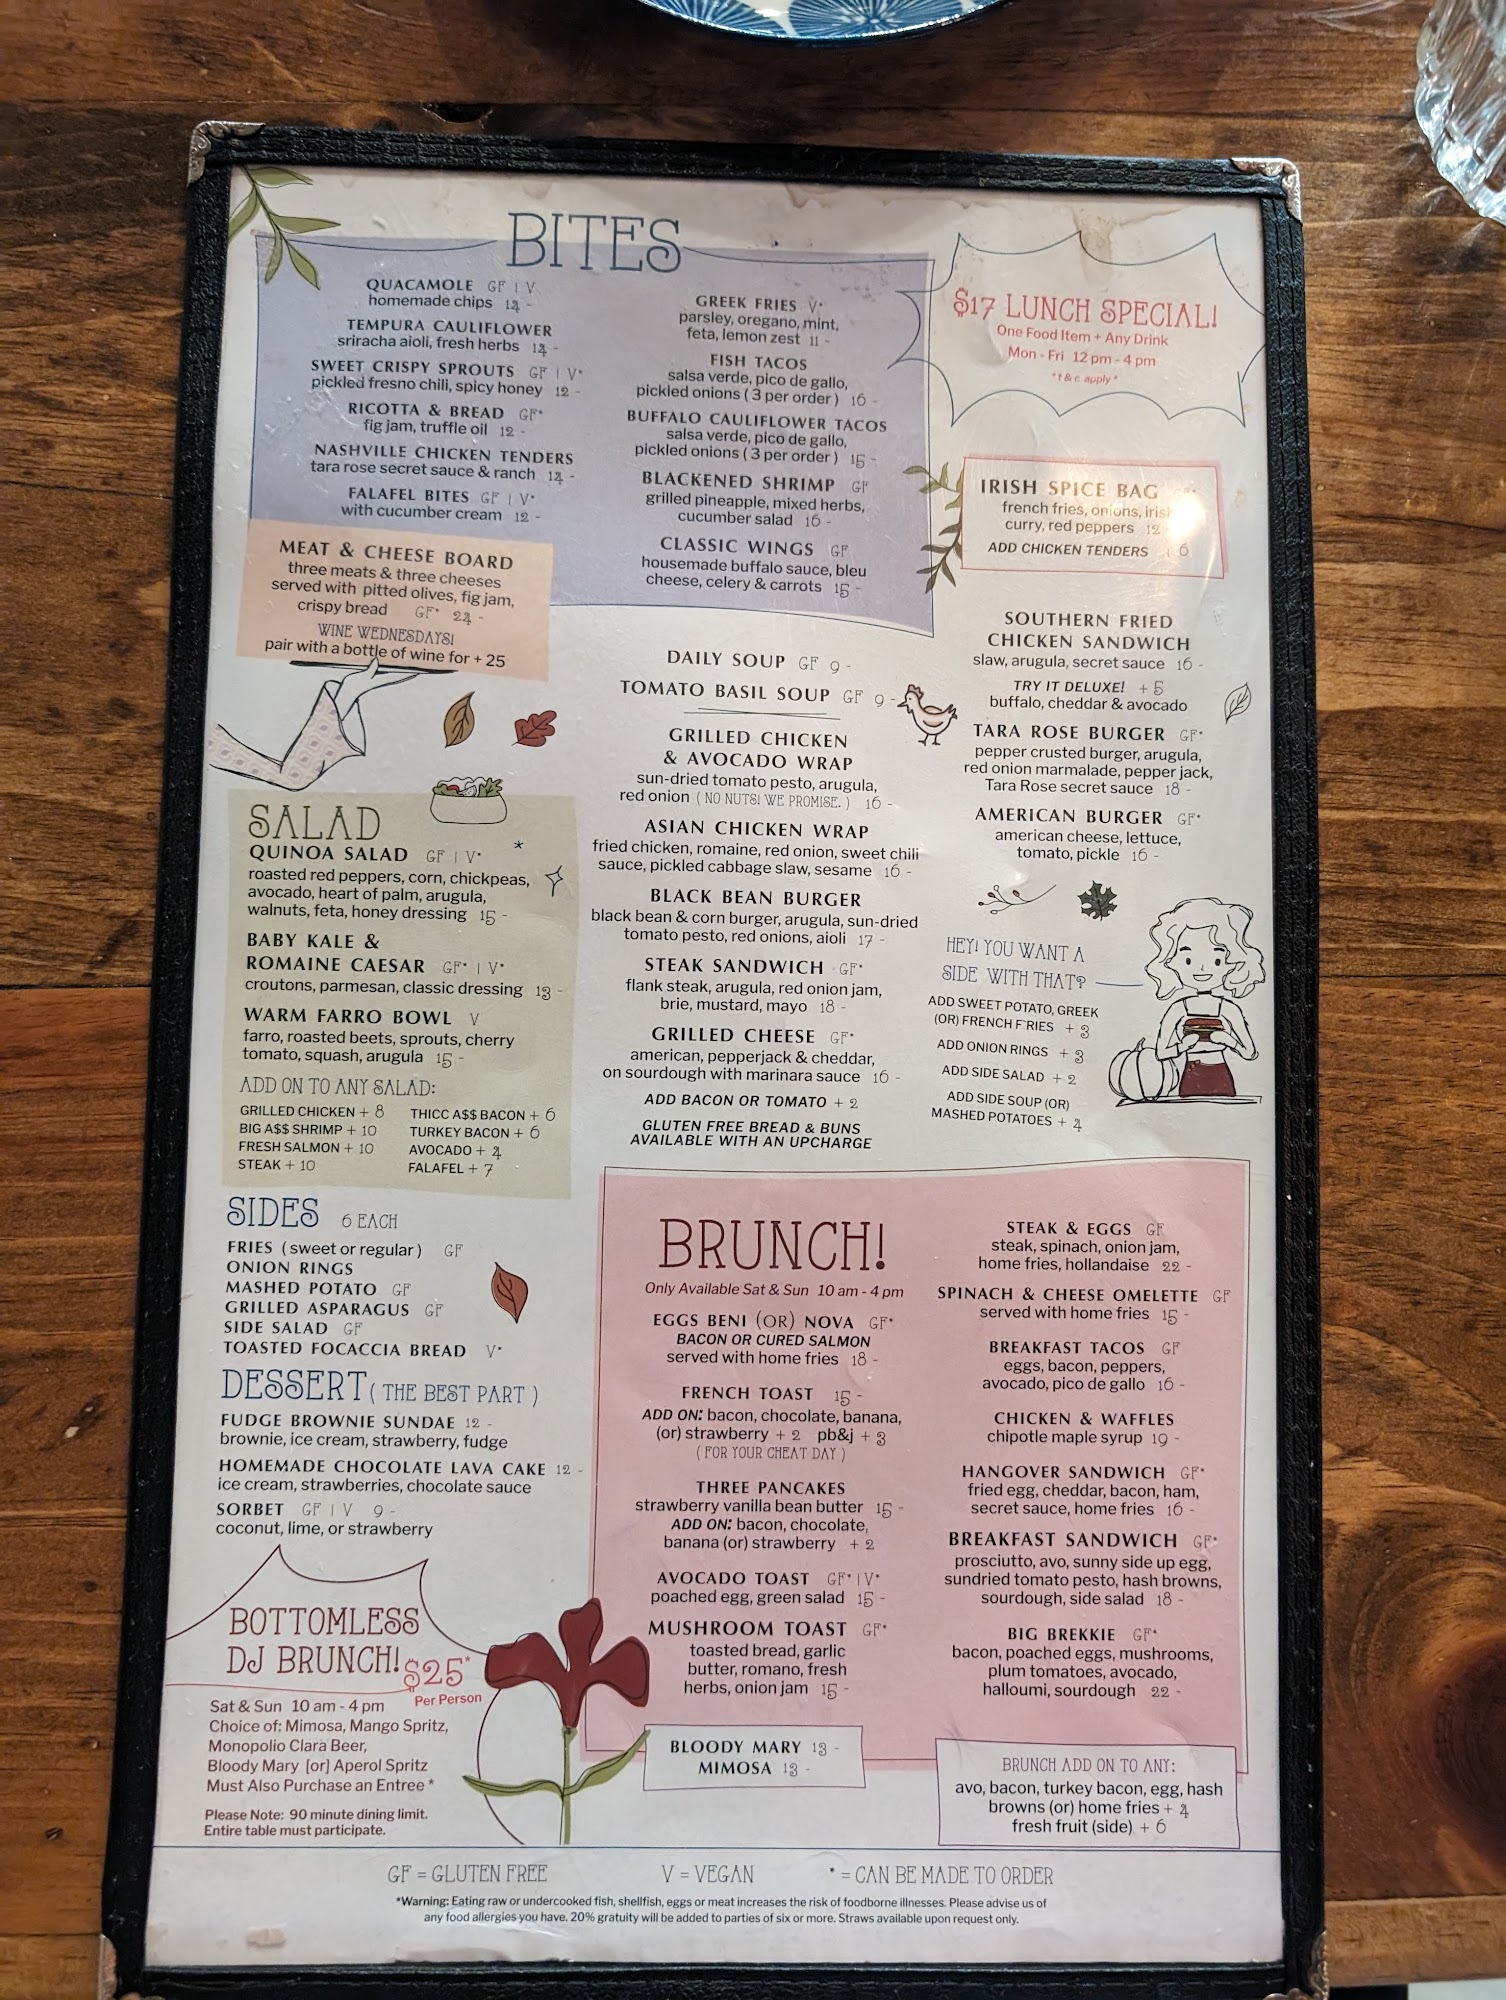 BITES
QUACAMOLE GF | V
homemade chips 14 -
TEMPURA CAULIFLOWER
sriracha aioli, fresh herbs 14 -
SWEET CRISPY SPROUTS GF | V*
pickled fresno chili, spicy honey 12 -
RICOTTA & BREAD GF*
fig jam, truffle oil 12 -
NASHVILLE CHICKEN TENDERS
tara rose secret sauce & ranch 14 -
FALAFEL BITES GF | V*
with cucumber cream 12 -
GREEK FRIES V*
parsley, oregano, mint,
feta, lemon zest 11 -
FISH TACOS
salsa verde, pico de gallo,
pickled onions ( 3 per order ) 16 -
BUFFALO CAULIFLOWER TACOS
salsa verde, pico de gallo,
pickled onions ( 3 per order ) 15 -
BLACKENED SHRIMP GF
grilled pineapple, mixed herbs,
cucumber salad 16 -
CLASSIC WINGS GF
housemade buffalo sauce, bleu
cheese, celery & carrots 15 -
MEAT & CHEESE BOARD
three meats & three cheeses
served with pitted olives, fig jam,
crispy bread GF* 24 -
WINE WEDNESDAYS!
pair with a bottle of wine for + 25
$17 LUNCH SPECIAL!
One Food Item + Any Drink
Mon - Fri 12 pm - 4 pm
* t & c apply *
IRISH SPICE BAG
french fries, onions, irish
curry, red peppers 12
ADD CHICKEN TENDERS 6
SOUTHERN FRIED
CHICKEN SANDWICH
slaw, arugula, secret sauce 16 -
TRY IT DELUXE! + 5
buffalo, cheddar & avocado
TARA ROSE BURGER GF*
pepper crusted burger, arugula,
red onion marmalade, pepper jack,
Tara Rose secret sauce 18 -
AMERICAN BURGER GF*
american cheese, lettuce,
tomato, pickle 16 -
HEY! YOU WANT A
SIDE WITH THAT?
ADD SWEET POTATO, GREEK
(OR) FRENCH FRIES + 3
ADD ONION RINGS + 3
ADD SIDE SALAD + 2
ADD SIDE SOUP (OR)
MASHED POTATOES + 4
DAILY SOUP GF 9 -
TOMATO BASIL SOUP GF 9 -
GRILLED CHICKEN
& AVOCADO WRAP
sun-dried tomato pesto, arugula,
red onion ( NO NUTS! WE PROMISE. ) 16 -
ASIAN CHICKEN WRAP
fried chicken, romaine, red onion, sweet chili
sauce, pickled cabbage slaw, sesame 16 -
BLACK BEAN BURGER
black bean & corn burger, arugula, sun-dried
tomato pesto, red onions, aioli 17 -
STEAK SANDWICH GF*
flank steak, arugula, red onion jam,
brie, mustard, mayo 18 -
GRILLED CHEESE GF*
american, pepperjack & cheddar,
on sourdough with marinara sauce 16 -
ADD BACON OR TOMATO + 2
GLUTEN FREE BREAD & BUNS
AVAILABLE WITH AN UPCHARGE
SALAD
QUINOA SALAD GF | V*
roasted red peppers, corn, chickpeas,
avocado, heart of palm, arugula,
walnuts, feta, honey dressing 15 -
BABY KALE &
ROMAINE CAESAR GF* | V*
croutons, parmesan, classic dressing 13 -
WARM FARRO BOWL V
farro, roasted beets, sprouts, cherry
tomato, squash, arugula 15 -
ADD ON TO ANY SALAD:
GRILLED CHICKEN + 8
BIG A$$ SHRIMP + 10
FRESH SALMON + 10
STEAK + 10
THICC A$$ BACON + 6
TURKEY BACON + 6
AVOCADO + 4
FALAFEL + 7
SIDES 6 EACH
FRIES ( sweet or regular ) GF
ONION RINGS
MASHED POTATO GF
GRILLED ASPARAGUS GF
SIDE SALAD GF
TOASTED FOCACCIA BREAD V*
DESSERT ( THE BEST PART )
FUDGE BROWNIE SUNDAE 12 -
brownie, ice cream, strawberry, fudge
HOMEMADE CHOCOLATE LAVA CAKE 12 -
ice cream, strawberries, chocolate sauce
SORBET GF | V 9 -
coconut, lime, or strawberry
BOTTOMLESS
DJ BRUNCH! $25*
Per Person
Sat & Sun 10 am - 4 pm
Choice of: Mimosa, Mango Spritz,
Monopolio Clara Beer,
Bloody Mary [or] Aperol Spritz
Must Also Purchase an Entree *
Please Note: 90 minute dining limit.
Entire table must participate.
BRUNCH!
Only Available Sat & Sun 10 am - 4 pm
EGGS BENI (OR) NOVA GF*
BACON OR CURED SALMON
served with home fries 18 -
FRENCH TOAST 15 -
ADD ON: bacon, chocolate, banana,
(or) strawberry + 2 pb&j + 3
( FOR YOUR CHEAT DAY )
THREE PANCAKES
strawberry vanilla bean butter 15 -
ADD ON: bacon, chocolate,
banana (or) strawberry + 2
AVOCADO TOAST GF* | V*
poached egg, green salad 15 -
MUSHROOM TOAST GF*
toasted bread, garlic
butter, romano, fresh
herbs, onion jam 15 -
BLOODY MARY 13 -
MIMOSA 13 -
STEAK & EGGS GF
steak, spinach, onion jam,
home fries, hollandaise 22 -
SPINACH & CHEESE OMELETTE GF
served with home fries 15 -
BREAKFAST TACOS GF
eggs, bacon, peppers,
avocado, pico de gallo 16 -
CHICKEN & WAFFLES
chipotle maple syrup 19 -
HANGOVER SANDWICH GF*
fried egg, cheddar, bacon, ham,
secret sauce, home fries 16 -
BREAKFAST SANDWICH GF*
prosciutto, avo, sunny side up egg,
sundried tomato pesto, hash browns,
sourdough, side salad 18 -
BIG BREKKIE GF*
bacon, poached eggs, mushrooms,
plum tomatoes, avocado,
halloumi, sourdough 22 -
BRUNCH ADD ON TO ANY:
avo, bacon, turkey bacon, egg, hash
browns (or) home fries + 4
fresh fruit (side) + 6
GF = GLUTEN FREE V = VEGAN * = CAN BE MADE TO ORDER
*Warning: Eating raw or undercooked fish, shellfish, eggs or meat increases the risk of foodborne illnesses. Please advise us of
any food allergies you have. 20% gratuity will be added to parties of six or more. Straws available upon request only.